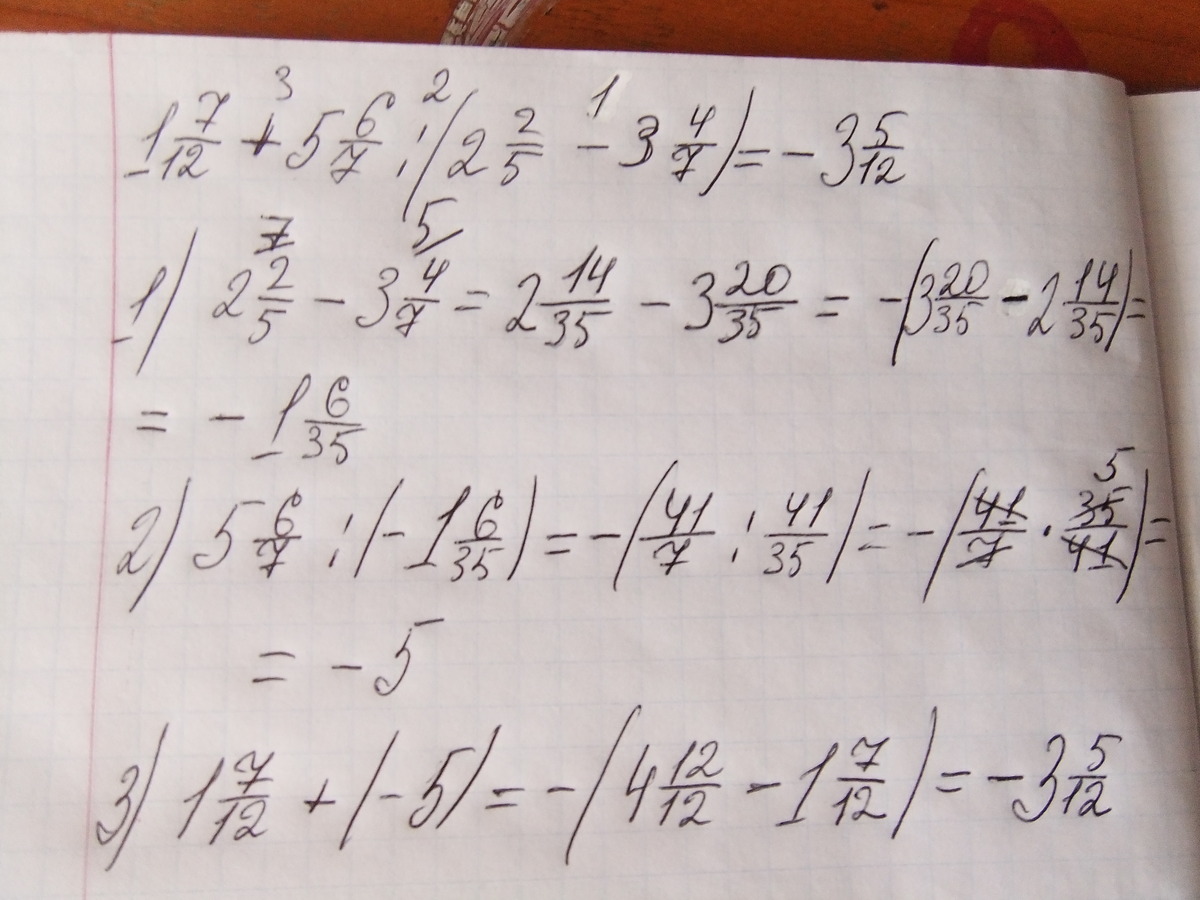 3 2 1
1 7/12 + 5 6/7 : (2 2/5 - 3 4/7) = - 3 5/12
7 5
1) 2 2/5 - 3 4/7 = 2 14/35 - 3 20/35 = -(3 20/35 - 2 14/35) =
= - 1 6/35
5
2) 5 6/7 : (- 1 6/35) = -(41/7 : 41/35) = -(41/7 · 35/41) =
= - 5
3) 1 7/12 + (- 5) = -(4 12/12 - 1 7/12) = - 3 5/12